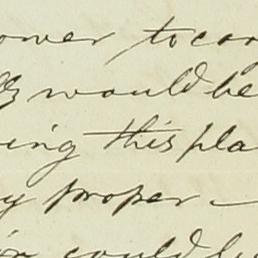 ower to con
lly would be
ing this pla
y proper -
could be